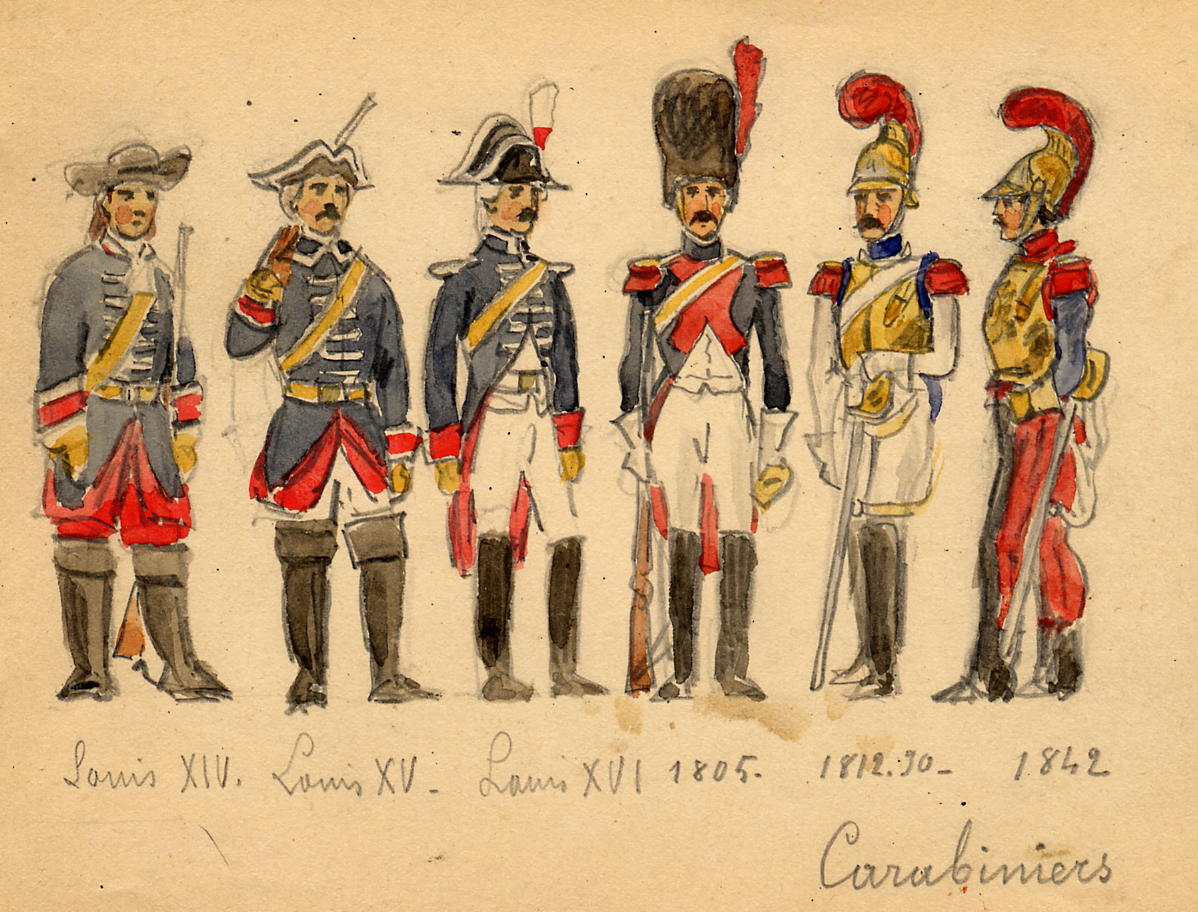 Louis XIV. Louis XV - Louis XVI 1805- 1812.30- 1842
Carabiniers